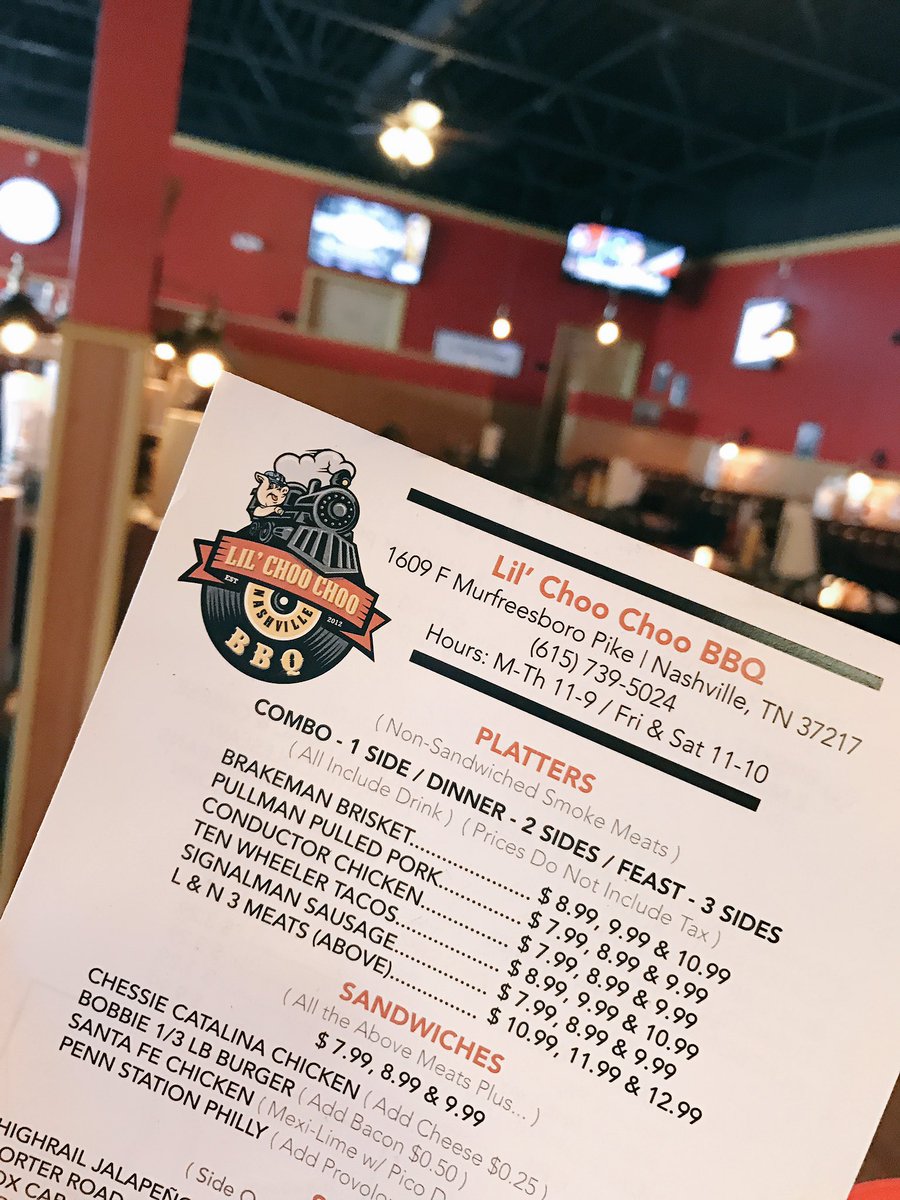 LIL' CHOO CHOO
EST
NASHVILLE
2012
BBQ
Lil' Choo Choo BBQ
1609 F Murfreesboro Pike | Nashville, TN 37217
(615) 739-5024
Hours: M-Th 11-9 / Fri & Sat 11-10
PLATTERS
( Non-Sandwiched Smoke Meats )
COMBO - 1 SIDE / DINNER - 2 SIDES / FEAST - 3 SIDES
( All Include Drink ) ( Prices Do Not Include Tax )
BRAKEMAN BRISKET................... $ 8.99, 9.99 & 10.99
PULLMAN PULLED PORK............. $ 7.99, 8.99 & 9.99
CONDUCTOR CHICKEN............... $ 7.99, 8.99 & 9.99
TEN WHEELER TACOS................. $ 8.99, 9.99 & 10.99
SIGNALMAN SAUSAGE............... $ 7.99, 8.99 & 9.99
L & N 3 MEATS (ABOVE)............. $ 10.99, 11.99 & 12.99
SANDWICHES
( All the Above Meats Plus... )
$ 7.99, 8.99 & 9.99
CHESSIE CATALINA CHICKEN ( Add Cheese $0.25 )
BOBBIE 1/3 LB BURGER ( Add Bacon $0.50 )
SANTA FE CHICKEN ( Mexi-Lime w/ Pico
PENN STATION PHILLY ( Add
( Side
HIGHRAIL
ROAD